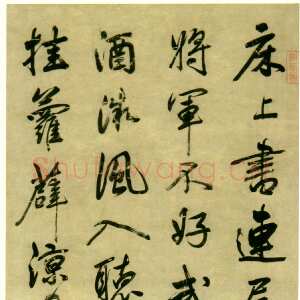 床上書連屋
將軍不好武
酒渴風入聽
挂蘿薜涼